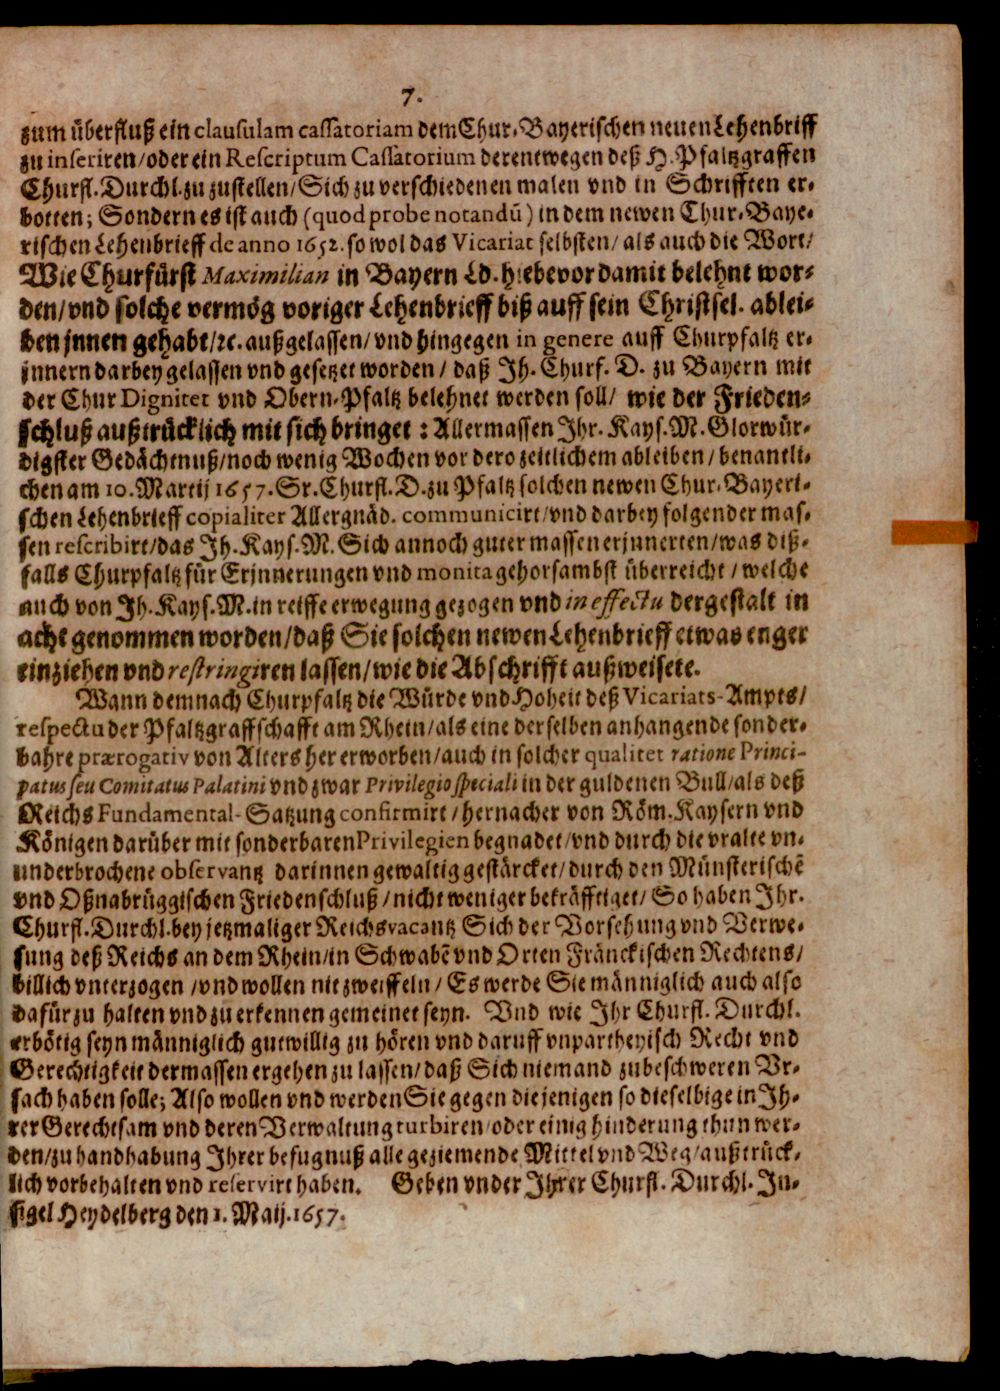 7.
zum überfluß ein clausulam cassatoriam dem Chur-Bayerischen neuen Lehenbriff
zu inseriren/oder ein Rescriptum Cassatorium derentwegen deß H. Pfaltzgraffen
Churfl. Durchl. zu zustellen/Sich zu verschiedenen malen vnd in Schrifften er-
botten; Sondern es ist auch (quod probe notandū) in dem newen Chur-Baye-
rischen Lehenbrieff de anno 1652. so wol das Vicariat selbsten/als auch die Wort/
Wie Churfürst Maximilian in Bayern Ld. hiebevor damit belehnt wor-
den/vnd solche vermög voriger Lehenbrieff biß auff sein Christsel. ablei-
ben jnnen gehabt/ꝛc. außgelassen/vnd hingegen in genere auff Churpfaltz er-
jnnern darbey gelassen vnd gesetzet worden/daß Jh. Churf. D. zu Bayern mit
der Chur Dignitet vnd Obern-Pfaltz belehnet werden soll/ wie der Frieden-
schluß außtrücklich mit sich bringet: Allermassen Jhr. Kays. M. Glorwür-
digster Gedächtnuß/noch wenig Wochen vor dero zeitlichem ableiben/benantli-
chen am 10. Martij 1657. Sr. Churfl. D. zu Pfaltz solchen newen Chur-Bayeri-
schen Lehenbrieff copialiter Allergnäd. communicirt/vnd darbey folgender mas-
sen rescribirt/das Jh. Kays. M. Sich annoch guter massen erjnnerten/was diß-
falls Churpfaltz für Erjnnerungen vnd monita gehorsambst überreicht/welche
auch von Jh. Kays. M. in reiffe erwegung gezogen vnd in effectu dergestalt in
acht genommen worden/daß Sie solchen newen Lehenbrieff etwas enger
einziehen vnd restringiren lassen/wie die Abschrifft außweisete.
Wann demnach Churpfaltz die Würde vnd Hoheit deß Vicariats-Ampts/
respectu der Pfaltzgraffschafft am Rhein/als eine derselben anhangende sonder-
bahre prærogativ von Alters her erworben/auch in solcher qualitet ratione Princi-
patus seu Comitatus Palatini vnd zwar Privilegio speciali in der guldenen Bull/als deß
Reichs Fundamental-Satzung confirmirt/hernacher von Röm. Kaysern vnd
Königen darüber mit sonderbaren Privilegien begnadet/vnd durch die vralte vn-
unterbrochene observantz darinnen gewaltig gestärcket/durch den Münsterischē
vnd Oßnabrüggischen Friedenschluß/nicht weniger bekräfftiget/So haben Jhr.
Churfl. Durchl. bey jetzmaliger Reichsvacantz Sich der Vorsehung vnd Verwe-
sung deß Reichs an dem Rhein/in Schwabē vnd Orten Fränckischen Rechtens/
billich vnterzogen/vnd wollen nit zweiffeln/Es werde Sie männiglich auch also
dafür zu halten vnd zu erkennen gemeinet seyn. Vnd wie Jhr Churfl. Durchl.
erbötig seyn männiglich gutwillig zu hören vnd daruff vnpartheyisch Recht vnd
Gerechtigkeit dermassen ergehen zu lassen/daß Sich niemand zubeschweren Vr-
sach haben solle; Also wollen vnd werden Sie gegen diejenigen so dieselbige in Jh-
rer Gerechtsam vnd deren Verwaltung turbiren/oder einig hinderung thun wer-
den/zu handhabung Jhrer befugnuß alle geziemende Mittel vnd Weg/außtrück-
lich vorbehalten vnd reservirt haben. Geben vnder Jhrer Churfl. Durchl. In-
sigel Heydelberg den 1. Maij. 1657.